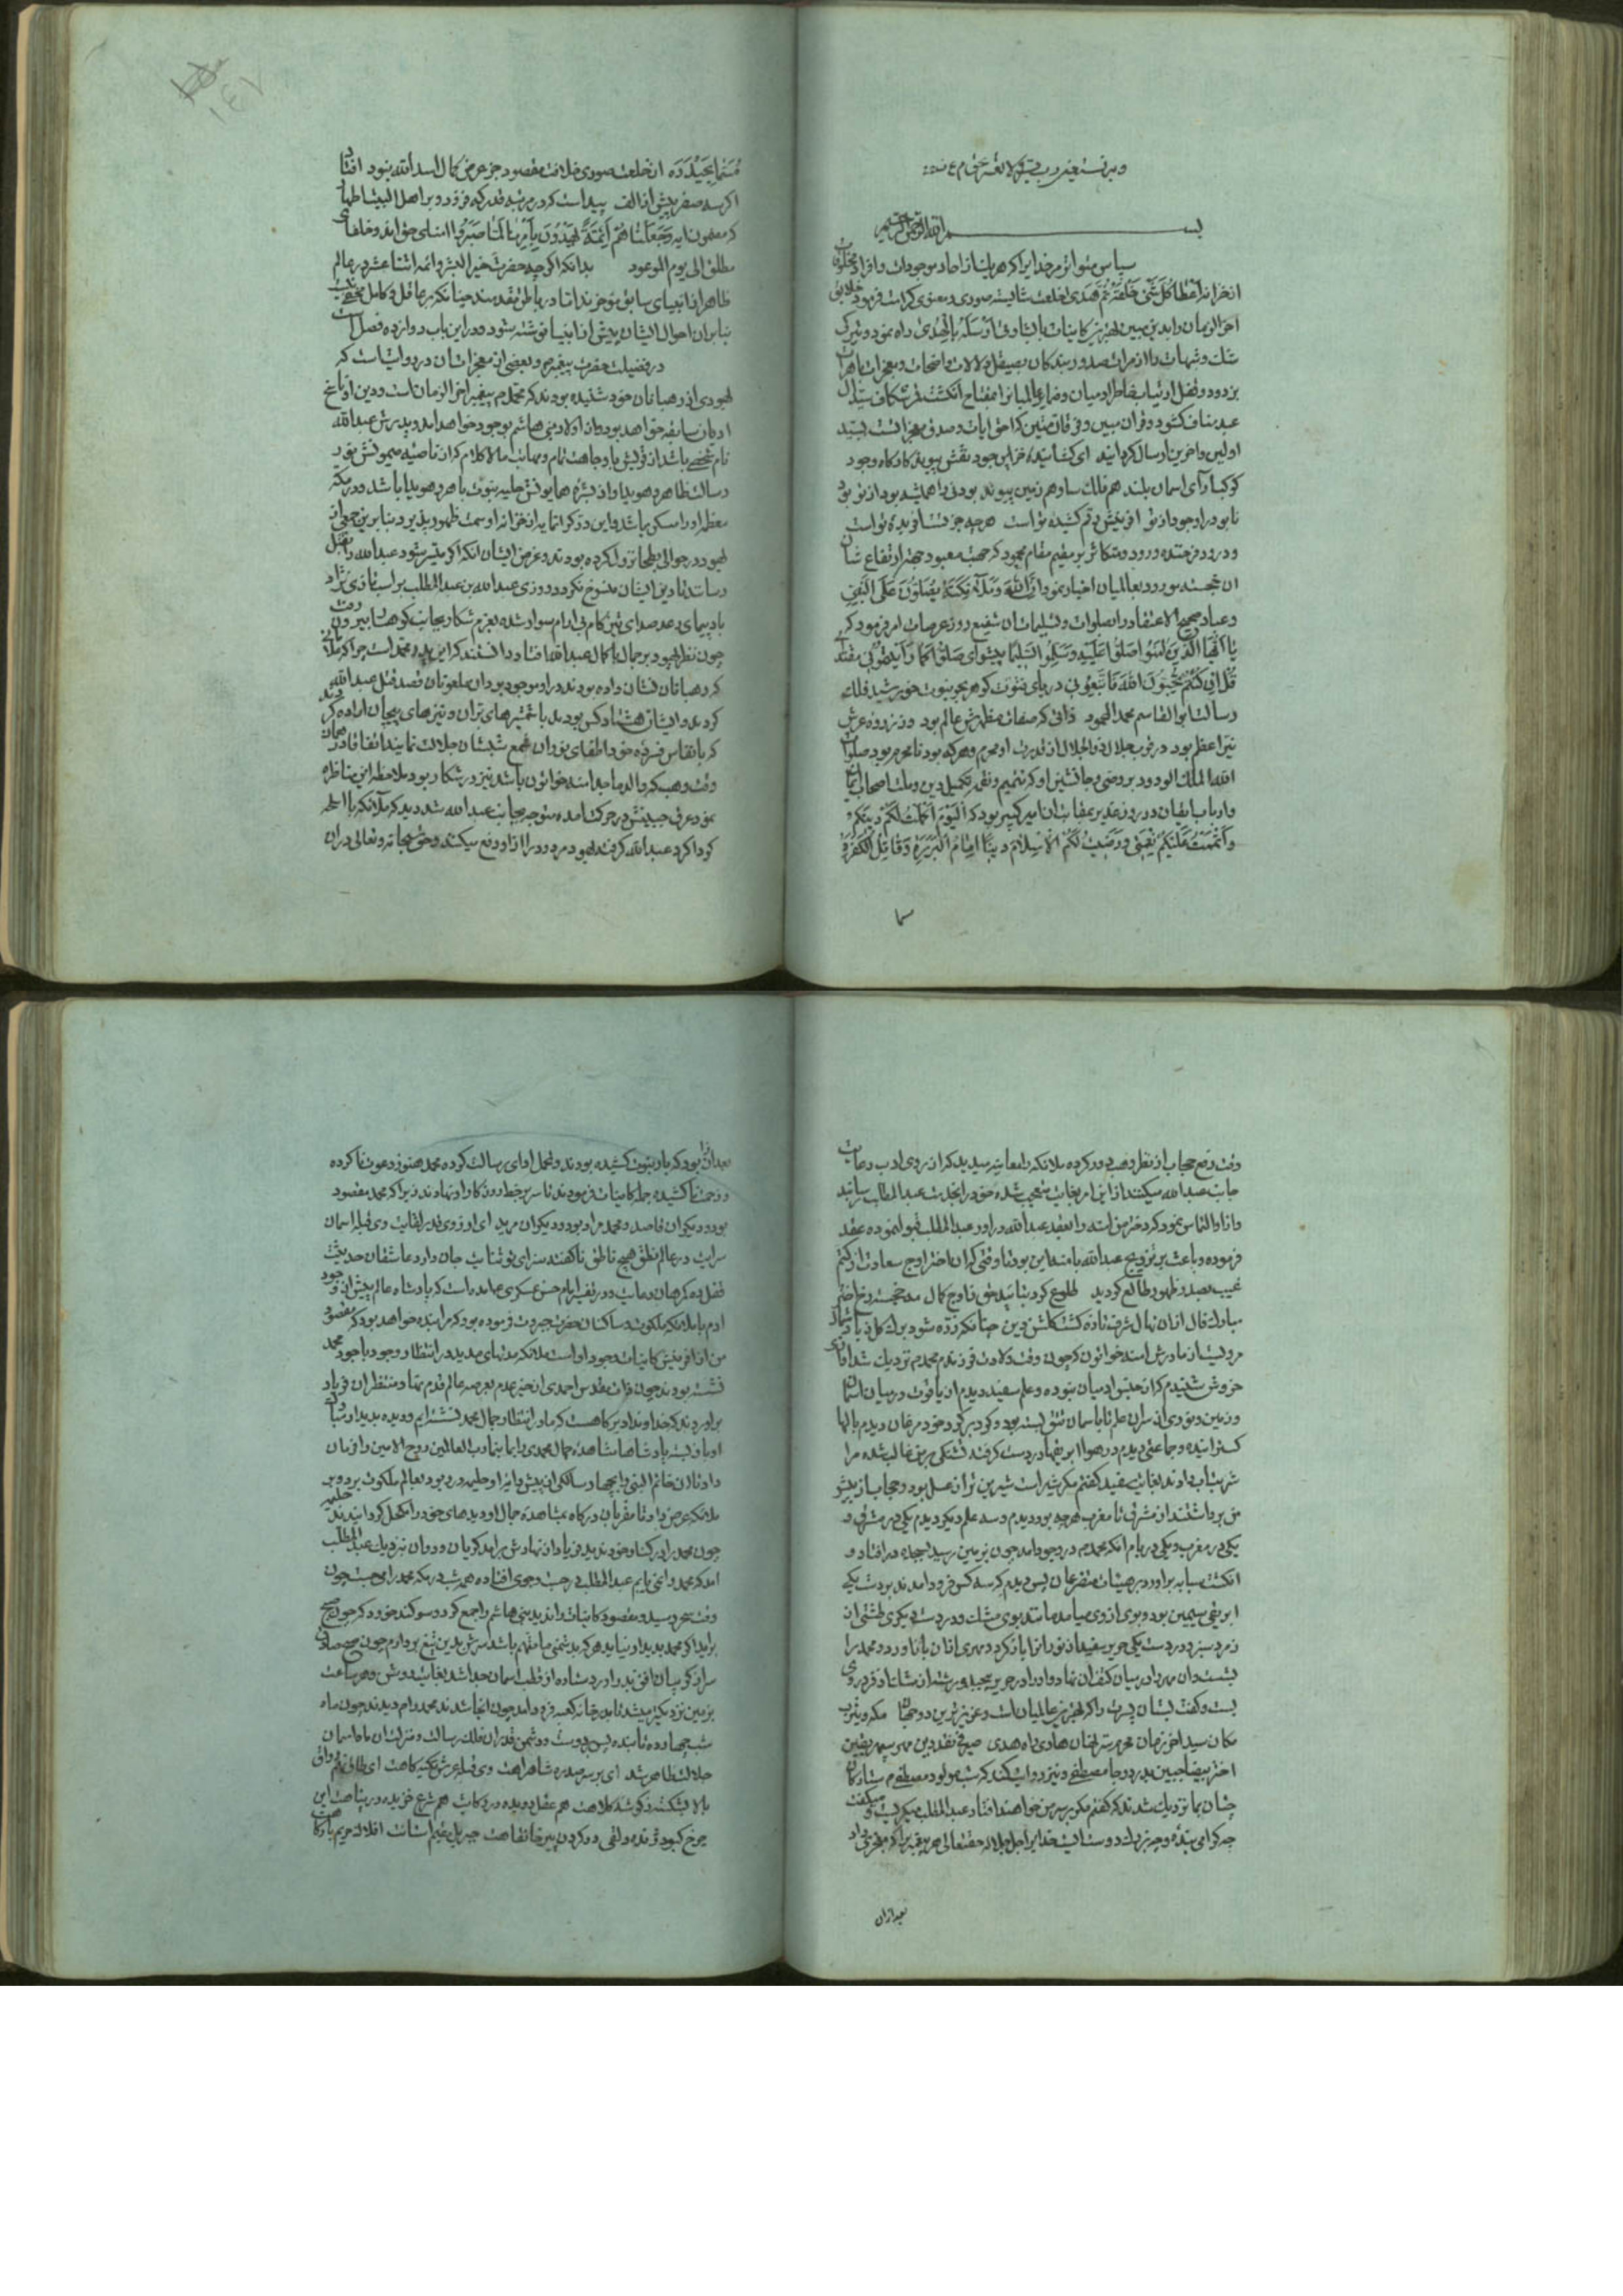 وبه نستعین
بسم الله الرحمن الرحیم
سپاس متواتر مر خدایرا که هر یک را از احاد موجودات و افراد مخلوقات
از خزانه اعطا کل شئ خلقه ثم هدی خلعت شایسته صوری و معنوی کرامت فرمود خلایق
اخر الزمان را بدین مبین بهترین کاینات بالهدی راه نمود و تیرکی
شک و شبهات را از مرات صدور بندکان بصیقل دلالات واضحات و معجزات باهرات
بزدود و قفل از میان مفتاح انکشت قمر شکاف سید ال
عبد مناف کشود و قران مبین و فرقان متین که احق ایات و اصدق معجزاتست بسید
اولین و اخرین ارسال کردانید ای کشاینده خزاین جود نقش پیوند کارکاه وجود
کوکب آرای اسمان بلند هم فلک ساز و هم زمین پیوند بودنی را همیشه بود از تو بود
نابود را وجود از تو افرینش رقم کشیده تو است هرچه جز تست افریده تو است
و درود فرخنده ورود متکاثر بر مقیم مقام محمود که حضرت معبود جهة ارتفاع شان
ان خجسته مورود بعالمیان اخبار نمود ان الله وملائکته یصلون علی النبی
و عباد صحیح الاعتقاد را بصلوات و تسلیمات ان شفیع روز عرصات امر فرمود که
یا ایها الذین امنوا صلوا علیه وسلموا تسلیما پیشوای صلوا کما رایتمونی مقتدای
قل ان کنتم تحبون الله فاتبعونی دریای فتوت کوهر بحر نبوت خورشید فلک
رسالت ابوالقاسم محمد المحمود ذاتی که صفات مظهرش عالم بود وز نور رهٔ عرش
نیر اعظم بود در قرب جلال ذو الجلال از قدرت او محرم و هر که بود نامحرم بود صلوات
الله الملک الودود بر وصی و جانشین او که تتمیم و تکمیل دین و ملت اصحاب ایمان
و ارباب ایقان در روز غدیر ان امیر کبیر بود که الیوم اکملت لکم دینکم
و اتممت علیکم نعمتی و رضیت لکم الاسلام دینا امام البررة و قاتل الکفرة
مسما
مسما بحیدره از خلعت صوری خلافت مقصود جز عرض کمال اسد الله نبود افتاد
اکر سه صفر پیش از الف پیداست که در مرتبه قدر که فزود و بر اهل البیت اطهار
که مضمون ایه وجعلناهم ائمة یهدون بامرنا لما صبروا امنای حق اند و خلفای
مطلق الی یوم الموعود بدانکه اکرچه حضرت خیر البشر و ائمه اثنا عشر در عالم
ظاهر از انبیای سابق مؤخرند اما در باطن مقدمند چنانکه بر عاقل کامل مخفی نیست
بنابران احوال ایشان پیش از انبیا نوشته شود و در این باب دوازده فصل است
در فضیلت حضرت پیغمبر و بعضی از معجزات ان در روایتست که
یهودی از رهبانان خود شنیده بودند که محمد م پیغمبر اخر الزمان است و دین او ناسخ
ادیان سابقه خواهد بود و از اولاد بنی هاشم بوجود خواهد امد و پدرش عبدالله
نام شخصی باشد از قریش با وجاهت تمام و مهابت مالا کلام که از ناصیه میمونش نور
رسالت ظاهر و هویدا و از بشره همایونش حلیه نبوت باهر و هویدا باشد و در مکه
معظمه او را مسکن باشد و این در کرانمایه از خزانه او سمت ظهور پذیرد بنابرین جمعی از
یهود در حوالی بطحا نزول کرده بودند و غرض ایشان انکه اکر میسر شود عبدالله را بقتل
رسانند تا دین ایشان منسوخ نکردد روزی عبدالله بن عبدالمطلب بر اسب تازی نژاد
باد پیمای رعد صدای تیز کام نی ارام سوار شده بعزم شکار بجانب کوهسار بیرون رفت
چون نظر یهود بر جمال با کمال عبدالله افتاد دانستند که این پدر محمد است چرا که علاماتی
که رهبانان نشان داده بودند در او موجود بود ان ملعونان قصد قتل عبدالله
کردند و ایشان هشتاد کس بودند با شمشیرهای بران و نیزهای پیچان اراده کردند
که بانفاس فسرده خود اطفای نور ان شمع شبستان جلالت نمایند اتفاقا در همان
وقت وهب که والد ماجد امنه خواتون باشد نیز در شکار بود ملاحظه این مناظره
نمود عرق حمیتش در حرکت امده متوجه بجانب عبدالله شد دید که ملائکه با اسلحه
کرداکرد عبدالله کرفته یهود مردود را از او دفع میکنند و حق سبحانه و تعالی دران
وقت رفع حجاب از نظر وهب دور کرده ملائکه را معاینه میدید که از روی ادب رعایت
جانب عبدالله میکنند از این امر بغایت متعجب شده خود را بخدمت عبدالمطلب رسانید
و از او التماس نمود که دختر من امنه را بعقد عبدالله دراور عبدالمطلب قبول نموده عقد
فرموده و باعث بر تزویج عبدالله بامنه این بود تا وقتی که ان اختر اوج سعادت از کتم
غیب بصدد ظهور طالع کردید طلوع کرد بتایید حق ز اوج کمال مه خجسته رخ اختر
مبارک فال از ان نهال شرف تازه کشت کلشن دین چنانکه زنده شود برک کل ز باد شمال
مرویست از مادرش امنه خواتون که چون وقت ولادت فرزندم محمد م نزدیک شد اواز
خروش شنیدم که از جنس ادمیان نبوده و علم سفید دیدم از یاقوت در میان اسمان
و زمین و نوری از سر ان علم تا باسمان تتق بسته بود و کرد بر کرد خود مرغان دیدم بالها
کسترانیده و جماعتی دیدم در هوا ابریقها در دست کرفته تشنکی بر من غالب شده مرا
شربت اب دادند بغایت سفید کفتم مکر شیر است شیرین تر از عسل بود و حجاب از پیش
من برداشتند از مشرق تا مغرب هر چه بود دیدم و سه علم دیکر دیدم یکی در مشرق و
یکی در مغرب و یکی در بام انکه محمد م در وجود امد چون بزمین رسید بسجده درافتاد و
انکشت سبابه براورد بر هیئات متضرعان پس دیدم که سه کس فرود امدند بدست یکی
ابریقی سیمین بود و بوی از وی میامد مانند بوی مشک و در دست دیکری طشتی از
زمرد سبز و در دست یکی حریر سفید از نور انرا باز کرد و مهری از ان باز اورد و محمد را
بشست و ان مهر را در میان کتف ان نهاد و او را در حریر پیچید
بست و کفت بشان پسرت را که بهترین عالمیان است و عزیزترین دو جهان مکه و یثرب
مکان سید اخر زمان محرم سر نهان هادی راه هدی صیرفی نقد دین مهر سپهر یقین
اختر بیضا جبین بدر دوجا مصطفی و نیز روایت کنند که شب مولود مصطفی م ستارکان
چنان بما نزدیک شدند که کفتم مکر بر سر من خواهند افتاد عبدالمطلب میکریست و میکفت
چه کرامی بنده و چه نزدیک دوست است خدایرا جل جلاله حقتعالی هر پیغمبر را که معجزی داد
بعد ازان
بعد ازان بود که بار نبوت کشیده بودند و تحمل ادای رسالت کرده محمد هنوز دعوت ناکرده
و زحمت ناکشیده جمله کاینات فرمودند تا سر بر خط روزکار او نهادند زیرا که محمد مقصود
بود و دیکران قاصد و محمد مراد بود و دیکران مرید ای ارزوی قدر لقایت وی قبله اسمان
سرایت در عالم نطق هیچ ناطق ناکفته سزای تو ثنایت جان داد و عاشقان حدیثت
قفل ده کرهان دهانت و در تفسیر امام حسن عسکری ع امده است که پادشاه عالم پیش از وجود
ادم با ملائکه ملکوت و ساکنان حضرت جبروت فرموده بود که مرا بنده خواهد بود که مقصود
من از افرینش کاینات وجود او است ملائکه مدتهای مدید در انتظار وجود با جود محمد
نشسته بودند چون ذات مقدس احمدی از حیز عدم بعرصه عالم قدم نهاد منتظران فریاد
براوردند که خداوندا دیر کاهست که ما در انتظار جمال محمد نشسته ایم و دیده بدیدار مبارک
او باز بسته پادشاها مشاهده جمال محمدی را بما بنما رب العالمین روح الامین را فرمان
داد تا ان خاتم النبی و سالکان پیش را نزد حلیمه برده بود بعالم ملکوت برده و بر
ملائکه عرض داد تا مقربان درکاه بمشاهده جمال او دیدهای خود را مکحل کردانیدند حلیمه
چون محمد را در کنار خود ندید فریاد از نهادش برامد کریان و دوان نزدیک عبدالمطلب
امد که محمد را نمی یابم عبدالمطلب در جست و جوی افتاده همه شب در مکه محمد را می جست چون
وقت سحر رسید و مقصود کاینات را ندید بنی هاشم را جمع کرد و سوکند خورد که چون صبح
براید اکر محمد بدیدار نیاید هر که بدشمنی ما متهم باشد سرش بدین تیغ بردارم چون صبح صادق
سر از کریبان افق بدر اورد ستاره از قطب اسمان جدا شد بغایت روشن و هر ساعت
بزمین نزدیکتر میشد تا بدر خانه کعبه فرود امد چون انجا شدند محمد را م دیدند چون ماه
شب چهارده تابنده پس دوست و دشمن قدر ان فلک رسالت و منزلت ان ماه اسمان
جلالت ظاهر شد ای بر سر سدره شاهراهت وی قبه عرش تکیه کاهت ای طاق نهم رواق
بالا بشکسته ز کوشه کلاهت هم عقل دویده در رکابت هم شرع خزیده در پناهت این
چرخ کبود ژنده دلقی در کردن پیر خانقاهت جبریل مقیم استانت افلاک حریم بارکاهت